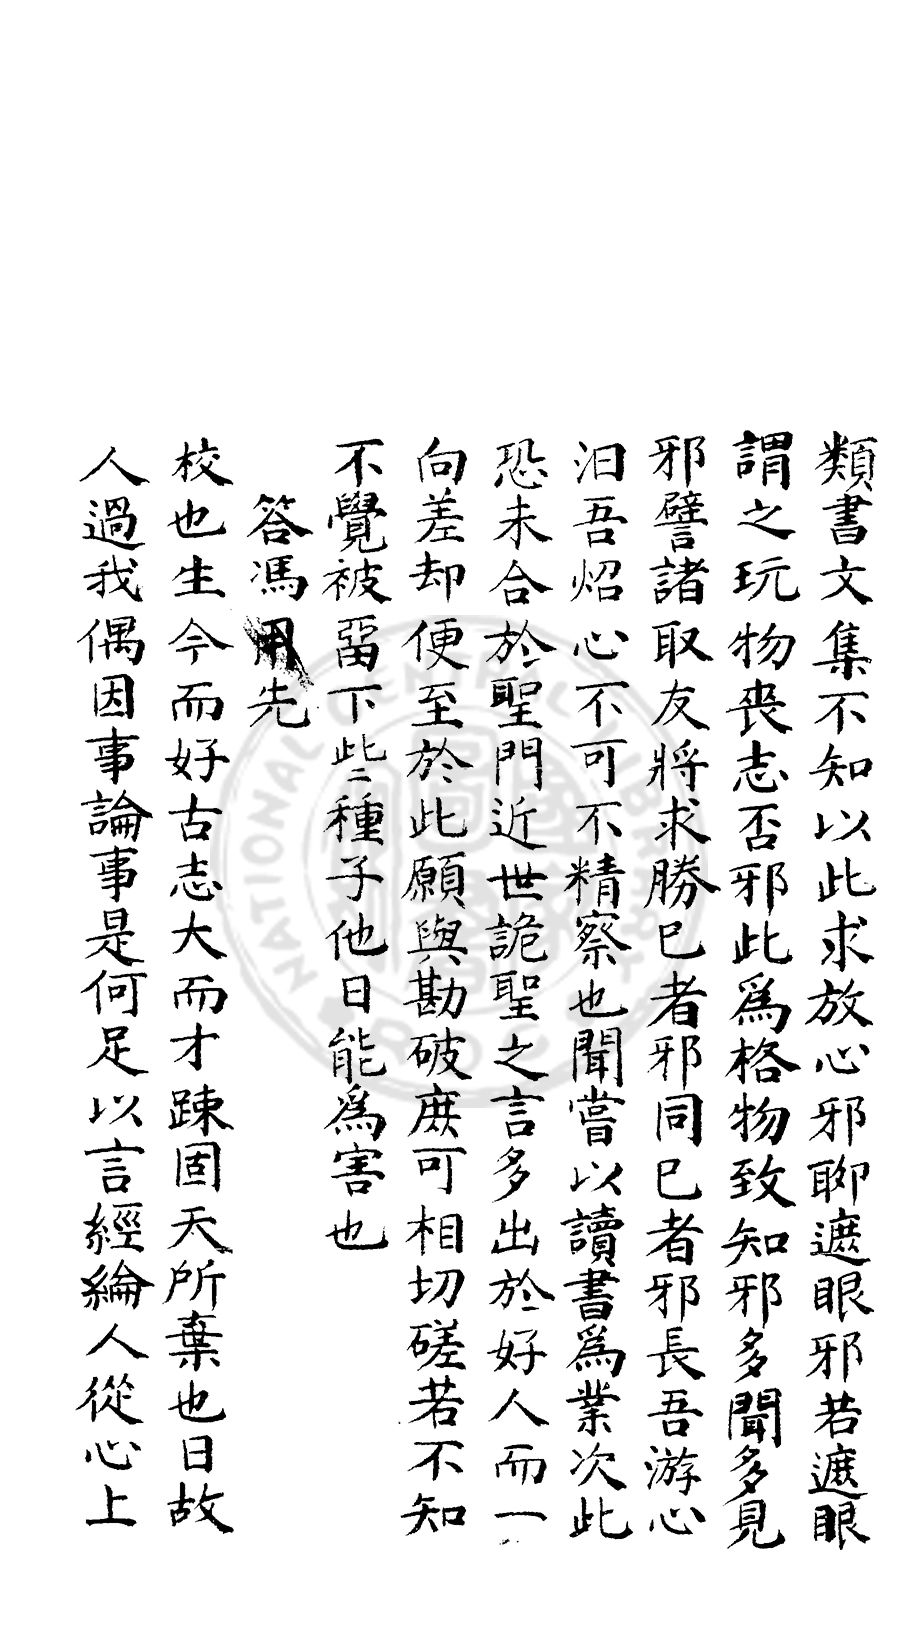 類書文集不知以此求放心邪聊遮眼邪若遮眼
謂之玩物喪志否邪此爲格物致知邪多聞多見
邪譬諸取友將求勝巳者邪同巳者邪長吾游心
汩吾炤心不可不精察也聞嘗以讀書爲業次此
恐未合於聖門近世詭聖之言多出於好人而一
向差却便至於此願與勘破庻可相切磋若不知
不覺被畱下些種子他日能爲害也
答馮先
校也生今而好古志大而才踈固天所棄也日故
人過我偶因事論事是何足以言經綸人從心上
NATIONAL CENTRAL LIBRARY